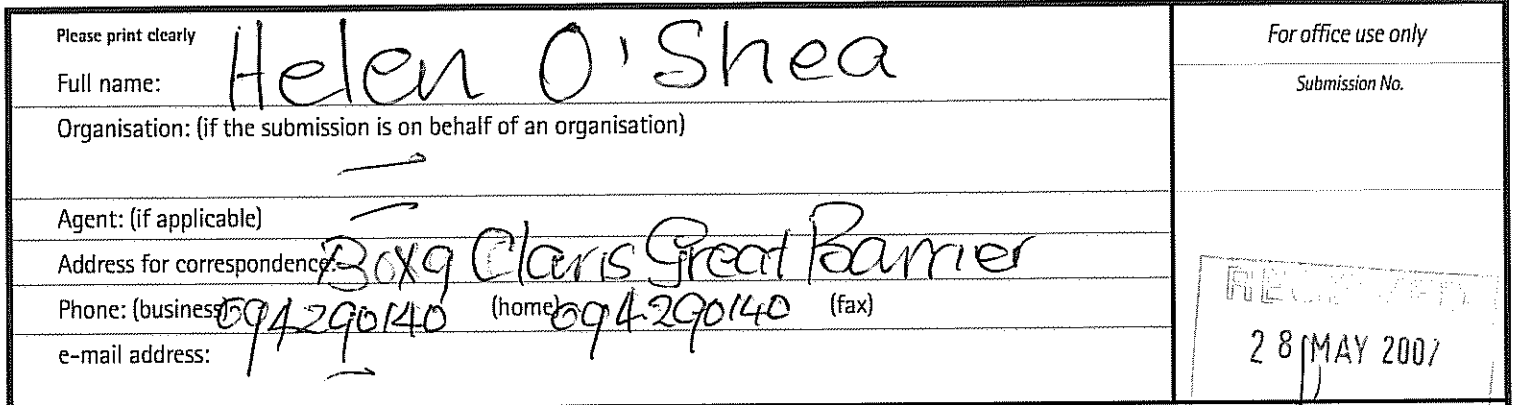 Please print clearly
Full name: Helen O'Shea
Organisation: (if the submission is on behalf of an organisation)
—
Agent: (if applicable) —
Address for correspondence: Box 9 Claris Great Barrier
Phone: (business) 094290140 (home) 094290140 (fax)
e-mail address: —
For office use only
Submission No.
RECEIVED
28 MAY 2007